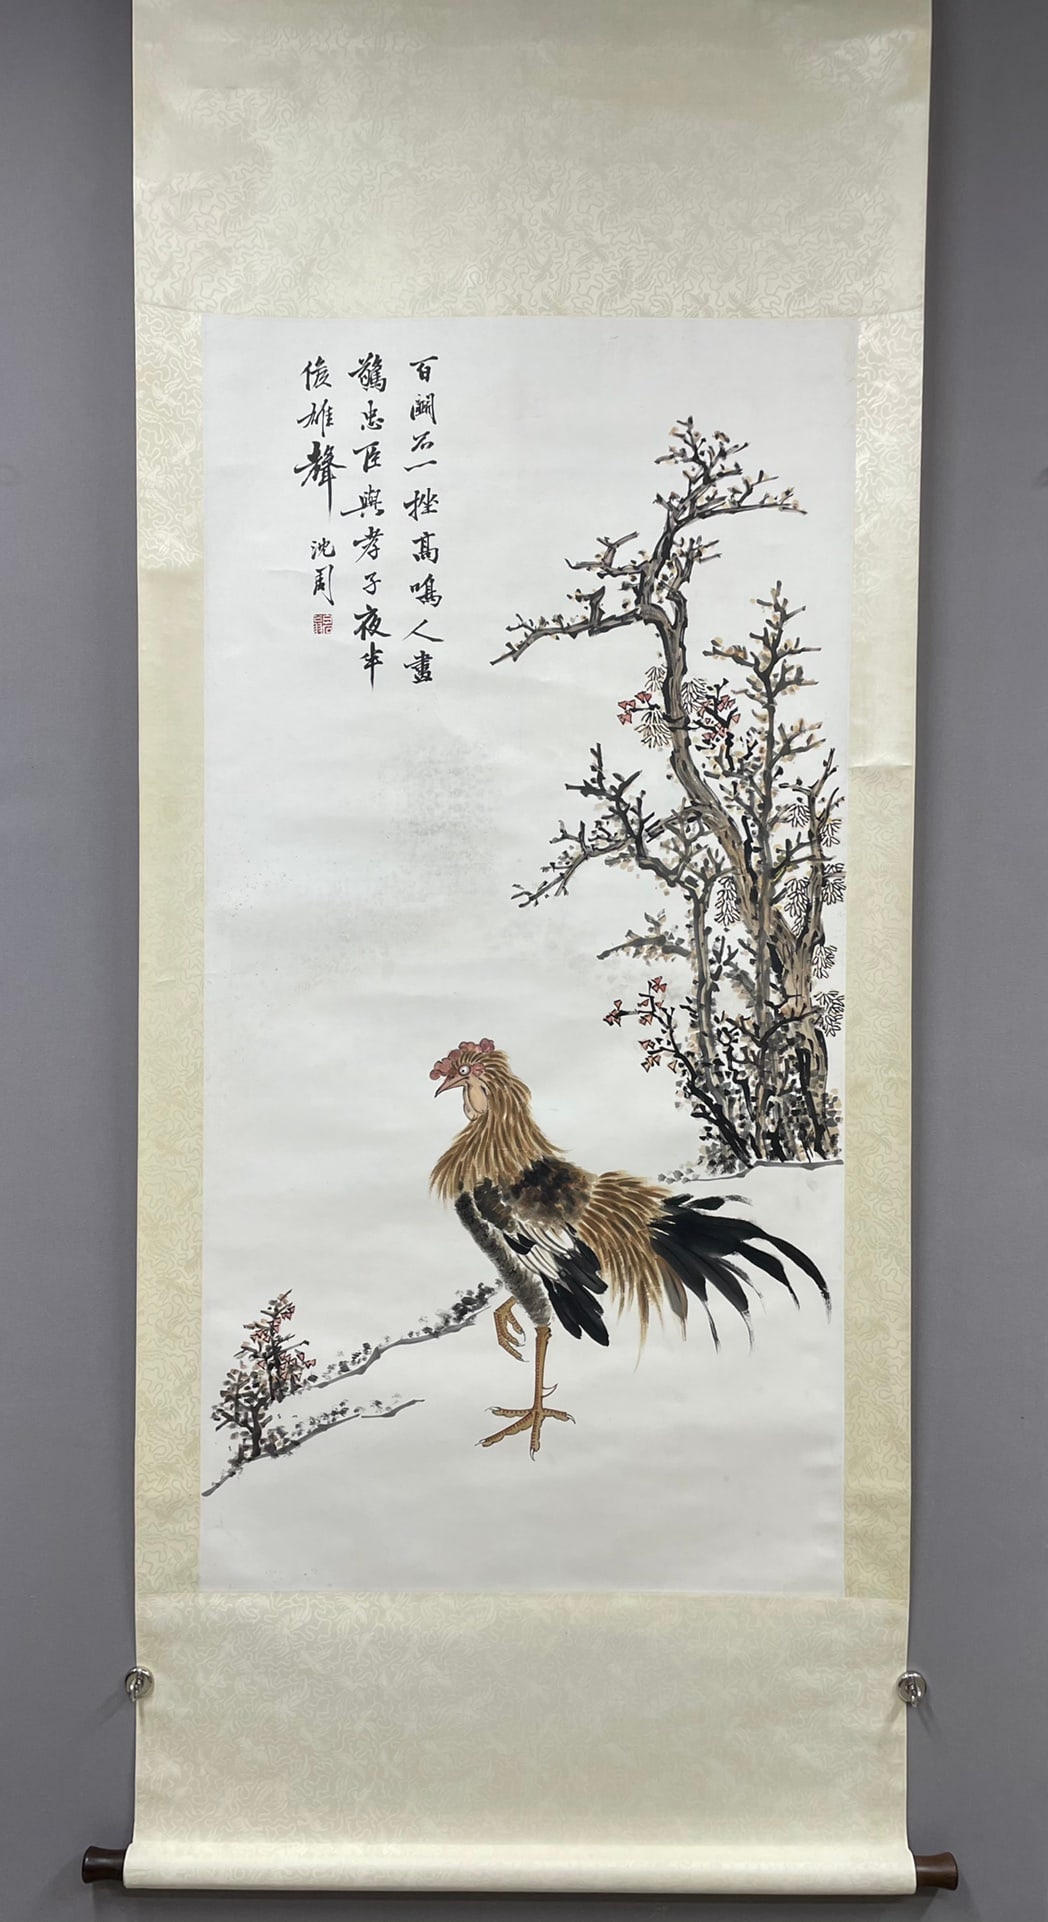 百鬭不一挫高鳴人盡
驚忠臣與孝子夜半
俟雄聲
沈周